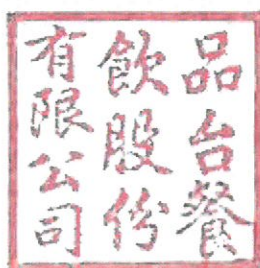 品台餐
飲股份
有限公司